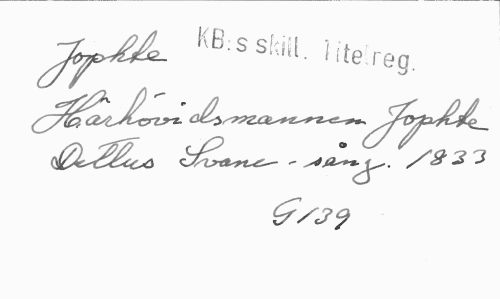 Jophte KB:s skill. Titelreg.
Härhövidsmannen Jophte
Dettus Svane-sång. 1833
G 139